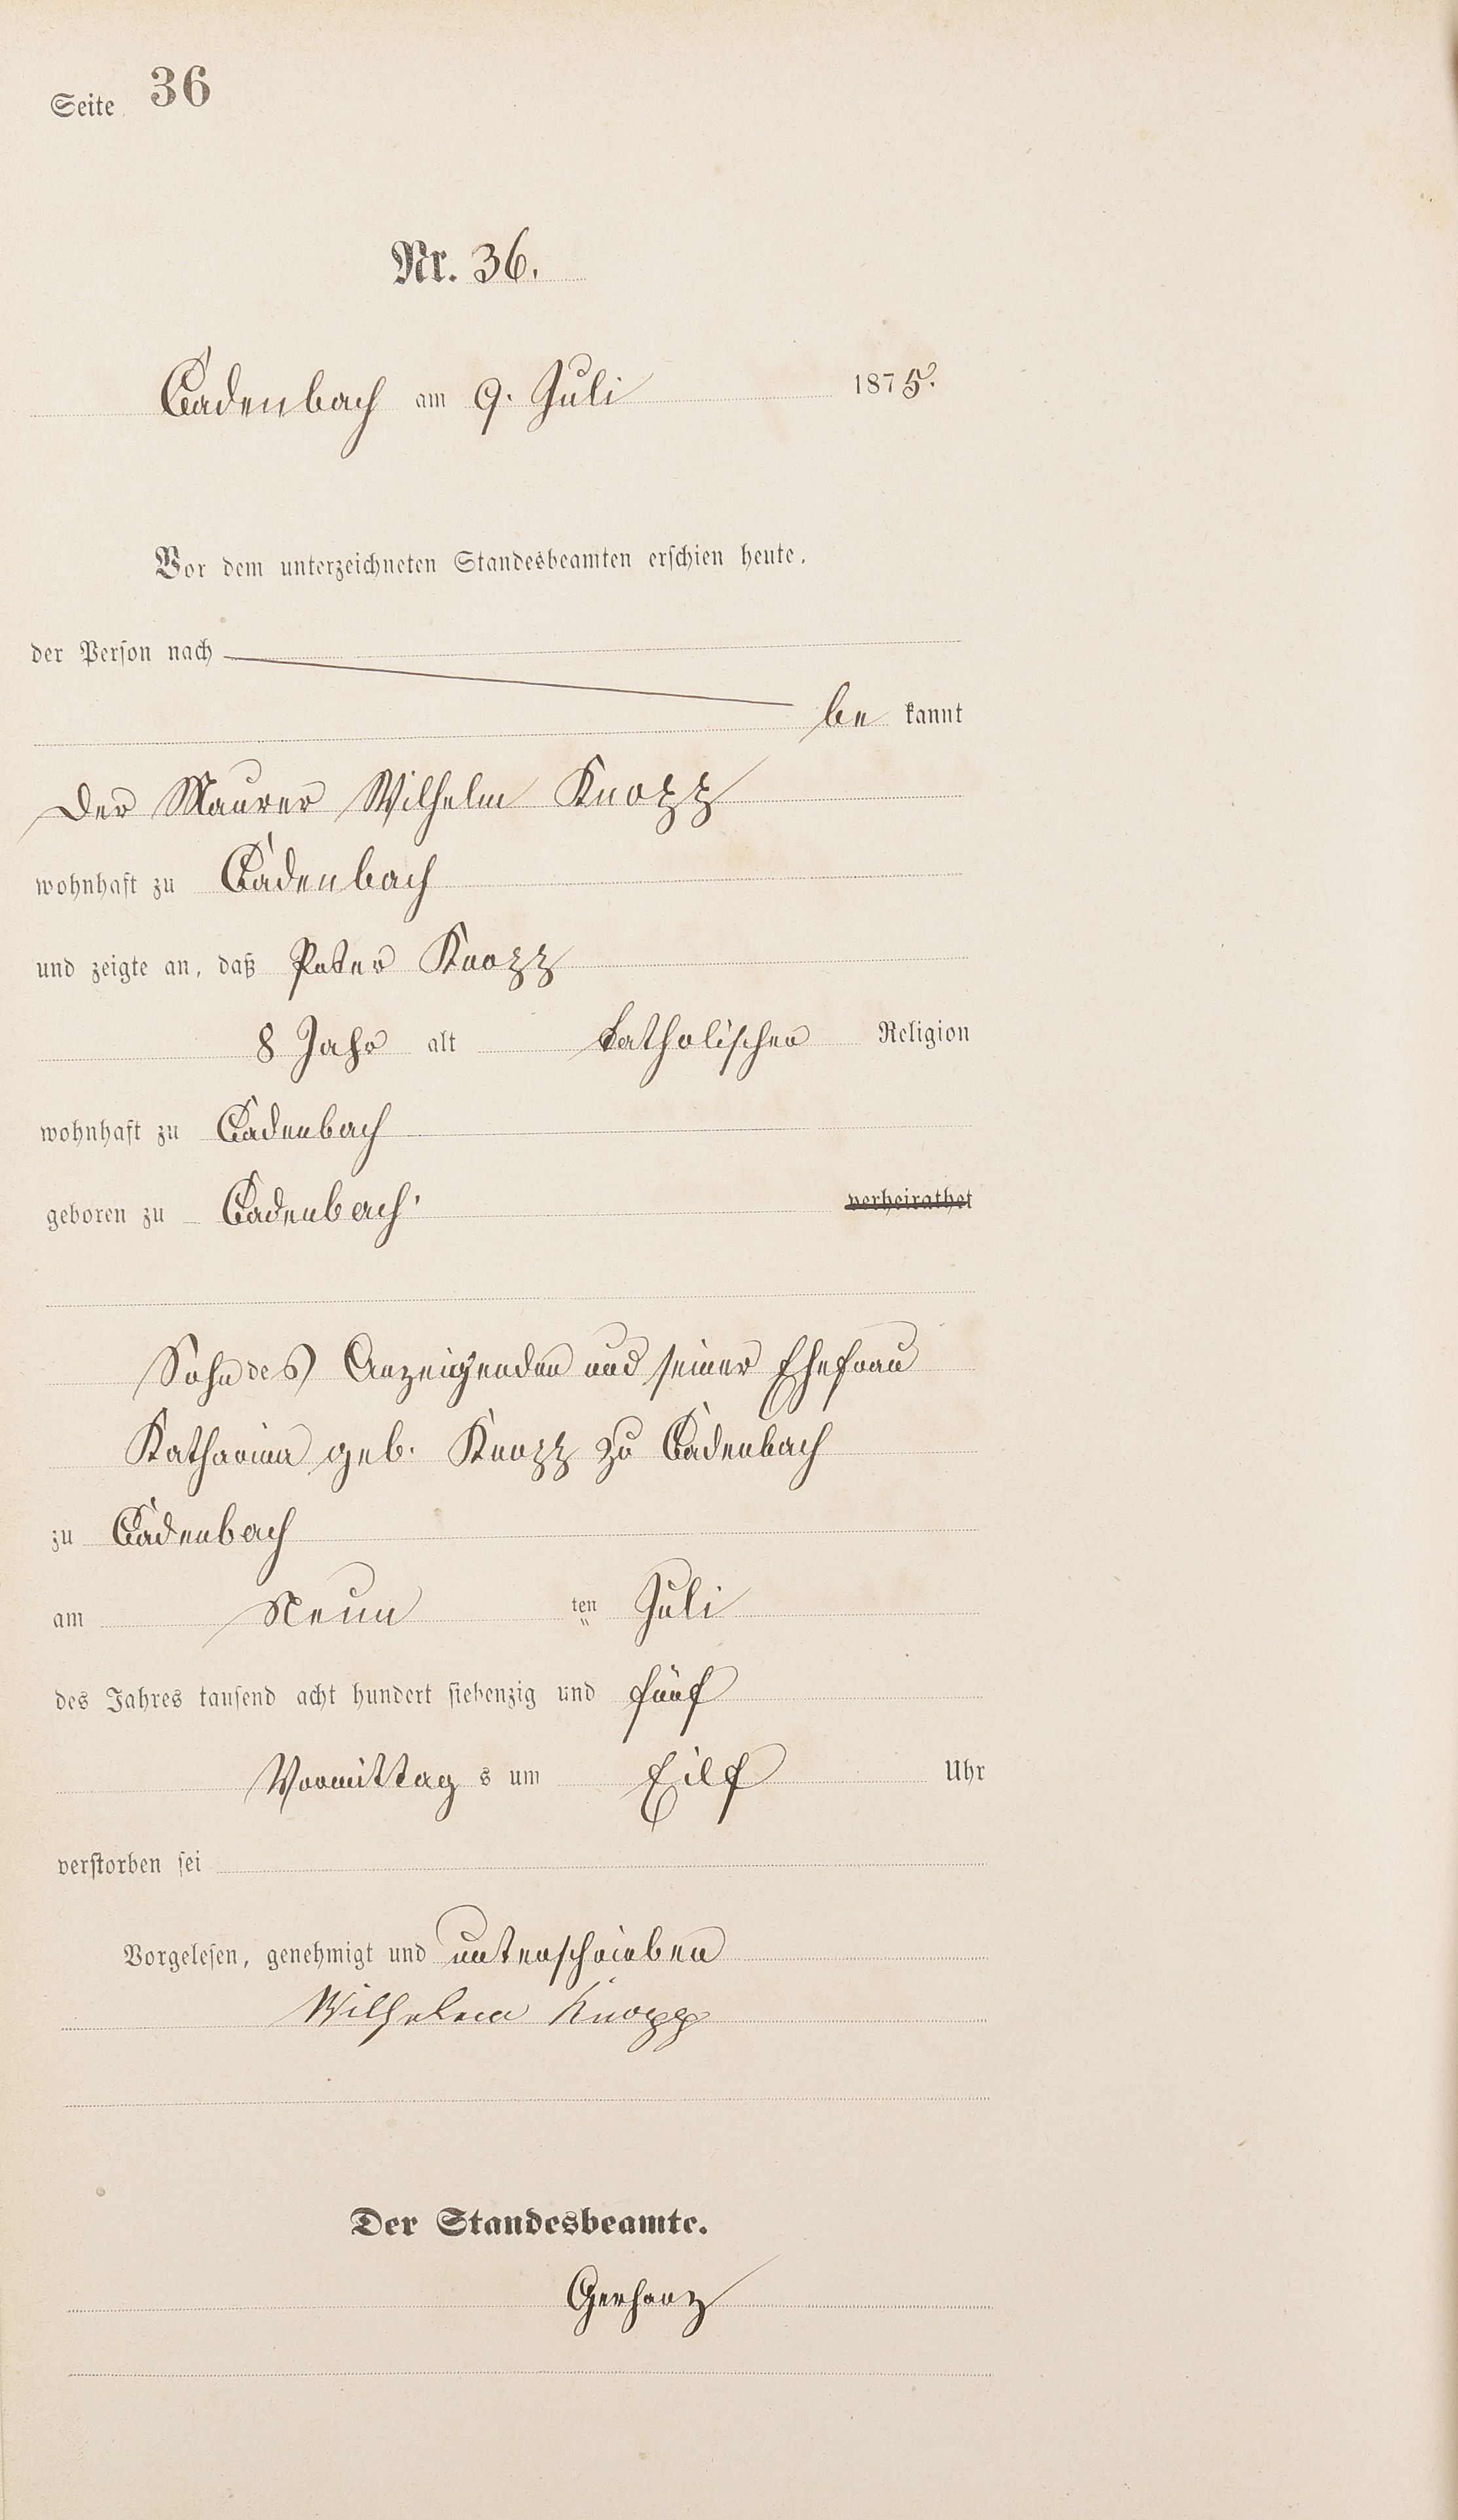 Seite 36
Nr. 36.
Cadenbach am 9. Juli 1875.
Vor dem unterzeichneten Standesbeamten erschien heute,
der Person nach
be kannt
der Maurer Wilhelm Knopp
wohnhaft zu Cadenbach
und zeigte an, daß Peter Knopp
8 Jahr alt katholischer Religion
wohnhaft zu Cadenbach
geboren zu Cadenbach, verheirathet
Sohn des Anzeigenden und seiner Ehefrau
Katharina geb. Knopp zu Cadenbach
zu Cadenbach
am Neun ten Juli
des Jahres tausend acht hundert siebenzig und fünf
Vormittag s um Eilf Uhr
verstorben sei
Vorgelesen, genehmigt und unterschrieben
Wilhelm Knopp
Der Standesbeamte.
Gerharz